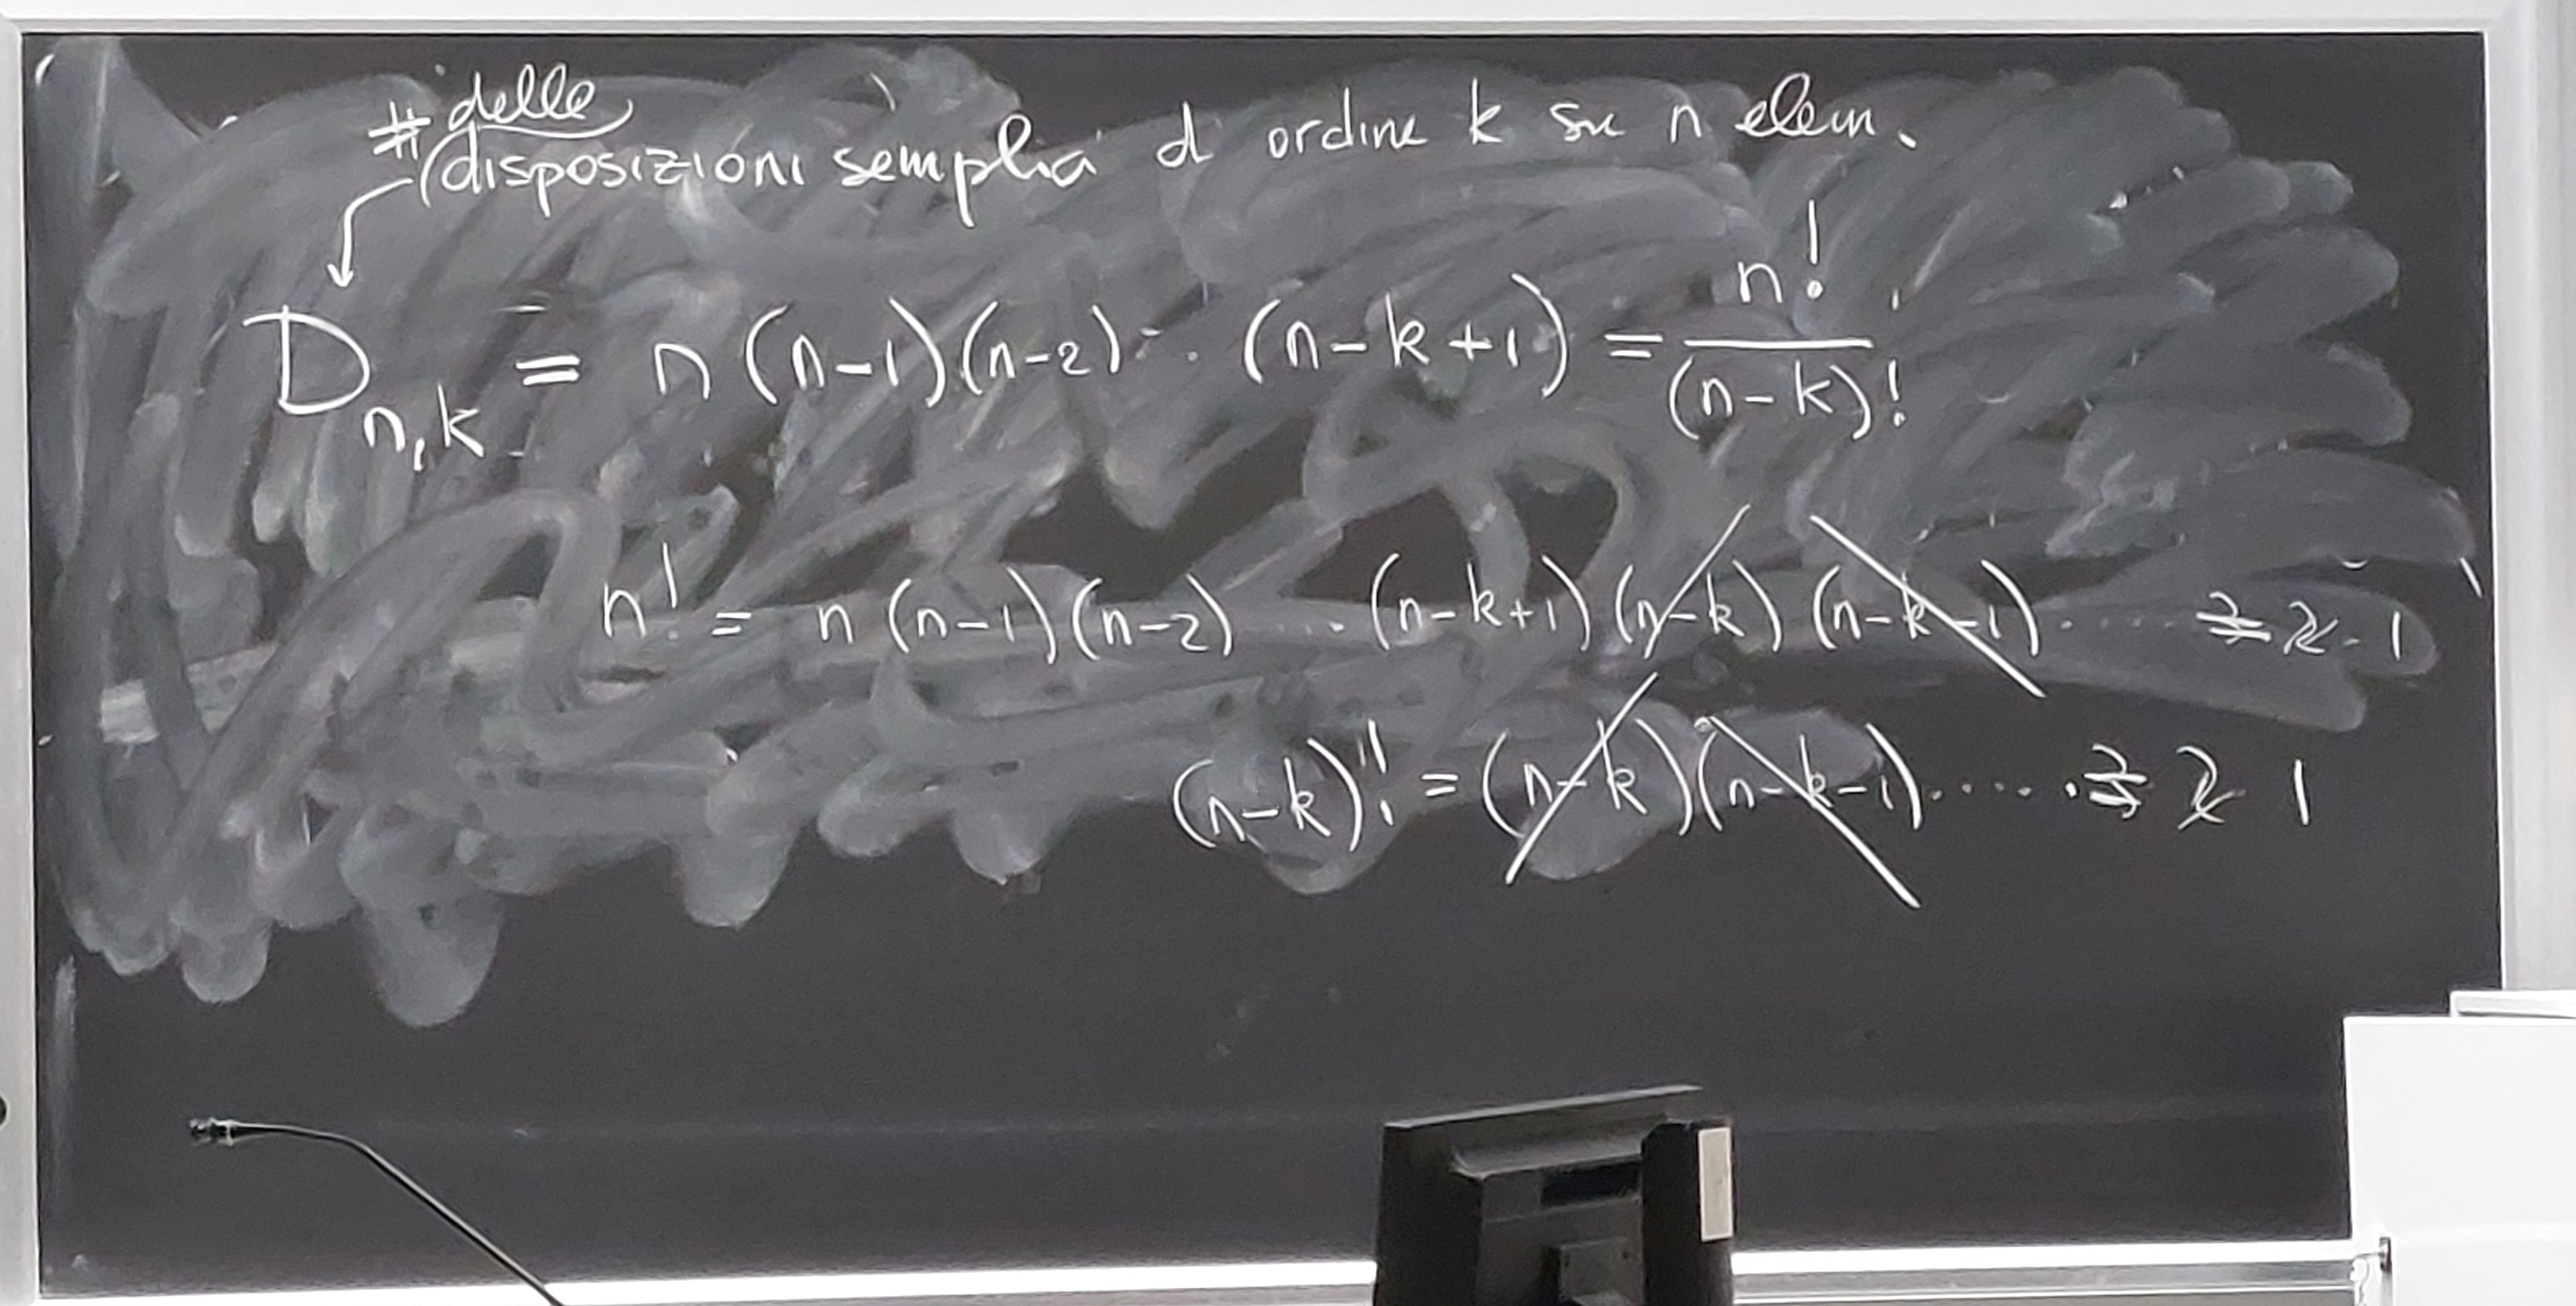 # delle
disposizioni semplici d ordine k su n elem.
D_{n,k} = n (n-1)(n-2) ... (n-k+1) = n! / (n-k)!
n! = n (n-1)(n-2) .... (n-k+1) (n-k) (n-k-1) ..... 3 2 · 1
(n-k)! = (n-k)(n-k-1) ...... 3 2 1